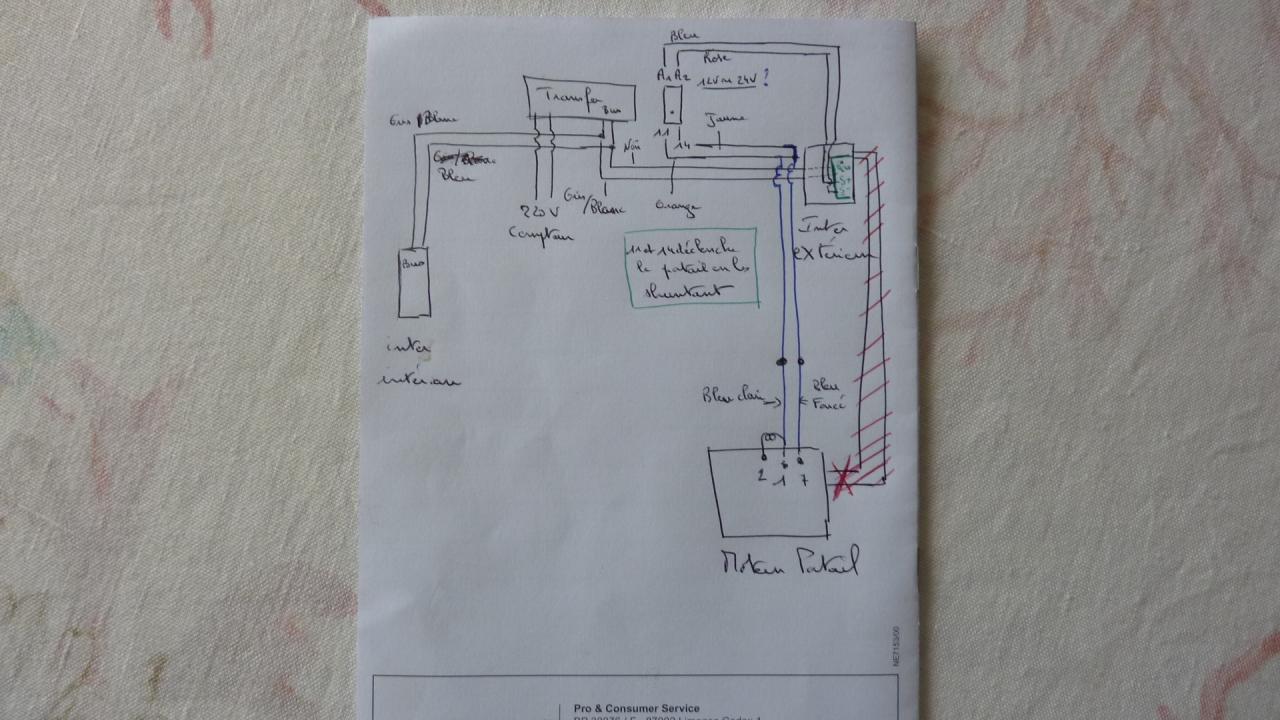 Bleu
Rose
A1 A2
12V ou 24V ?
Transfo
Bus
Gris/Blanc
Jaune
11
14
Noir
Bleu
Gris/Blanc
Orange
220V
Compteur
Inter
extérieur
11 et 14 déclenche
le portail en les
shuntant
Bus
inter
intérieur
Bleu clair
Bleu
Foncé
2 1 7
Moteur Portail
NE7153/00
Pro & Consumer Service